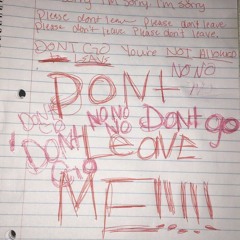 sorry I'm sorry I'm sorry
Please dont leave Please dont leave
Please dont leave Please dont leave.
DONT GO You're NOT Allowed
LEAVE
NO NO
DONT
DONT GO NO NO NO DONT go
DONT LEAVE
GO
ME!!!!!